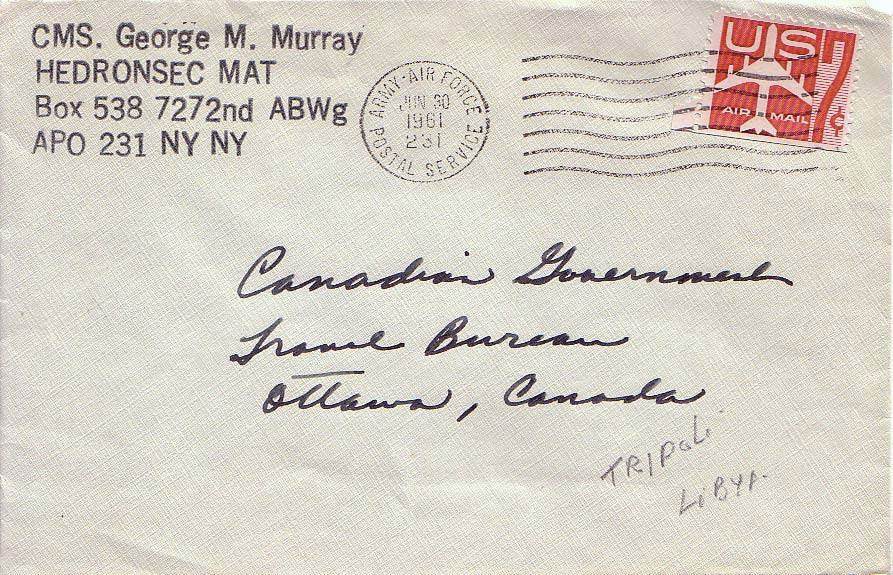 CMS. George M. Murray
HEDRONSEC MAT
Box 538 7272nd ABWg
APO 231 NY NY
ARMY-AIR FORCE
JUN 30
1961
231
POSTAL SERVICE
US
AIR MAIL
7¢
Canadian Government
Travel Bureau
Ottawa, Canada
TRIPOLI
LIBYA.